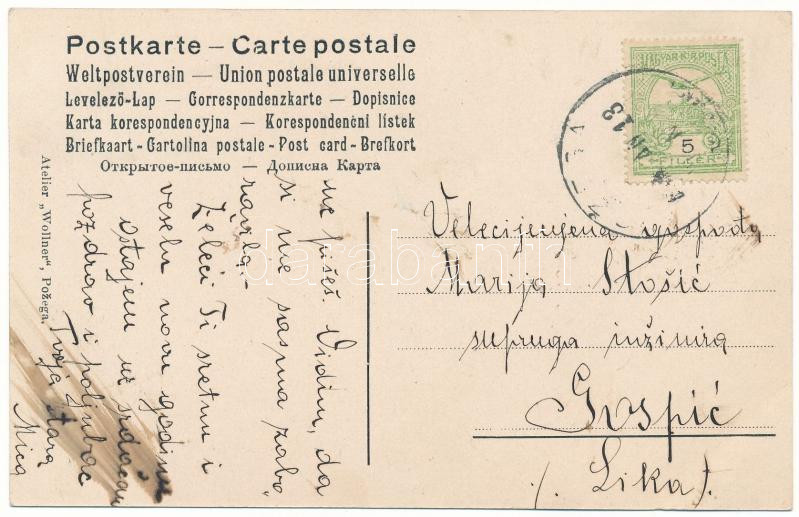 Postkarte – Carte postale
Weltpostverein — Union postale universelle
Levelezö-Lap — Correspondenzkarte — Dopisnice
Karta korespondencyjna — Korespondenční lístek
Briefkaart - Cartolina postale - Post card - Brefkort
Открытое-письмо — Дописна Карта
Atelier „Wollner", Požega.
MAGYAR KIR. POSTA
5
FILLÉR
JAN 13
ne pišeš. Vidim, da
si me sasma zabo,
ravila.
Želeći Ti sretnu i
veselu novu godinu
ostajem uz srdačan
pozdrav i poljubac
Tvoja stara
Mica
Velecijenjena gospodja
Marija Stošić
supruga inžinira
Gospić
(Lika).
darabanth